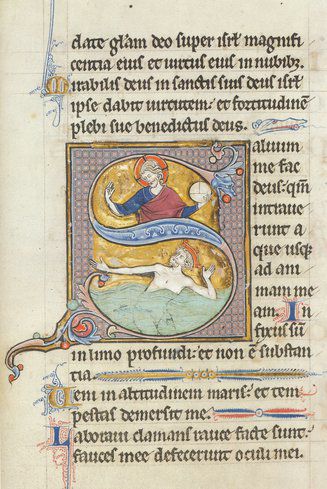 date gl̃am deo super isrl̃ magnifi
centia eius et uirtus eius in nubibꝫ.
Mirabilis deus in sanctis suis deus isrl̃
ipse dabit uirtutem· et fortitudinẽ
plebi sue benedictus deus.
Saluum
me fac
deus: qm̃
intraue
runt a
que usqꝫ
ad ani
mam me
am. In
fixus sũ
in limo profundi: et non ẽ substan
tia.
Ueni in altitudinem maris: et tem
pestas demersit me.
Laboraui clamans rauce facte sunt
fauces mee defecerunt oculi mei.